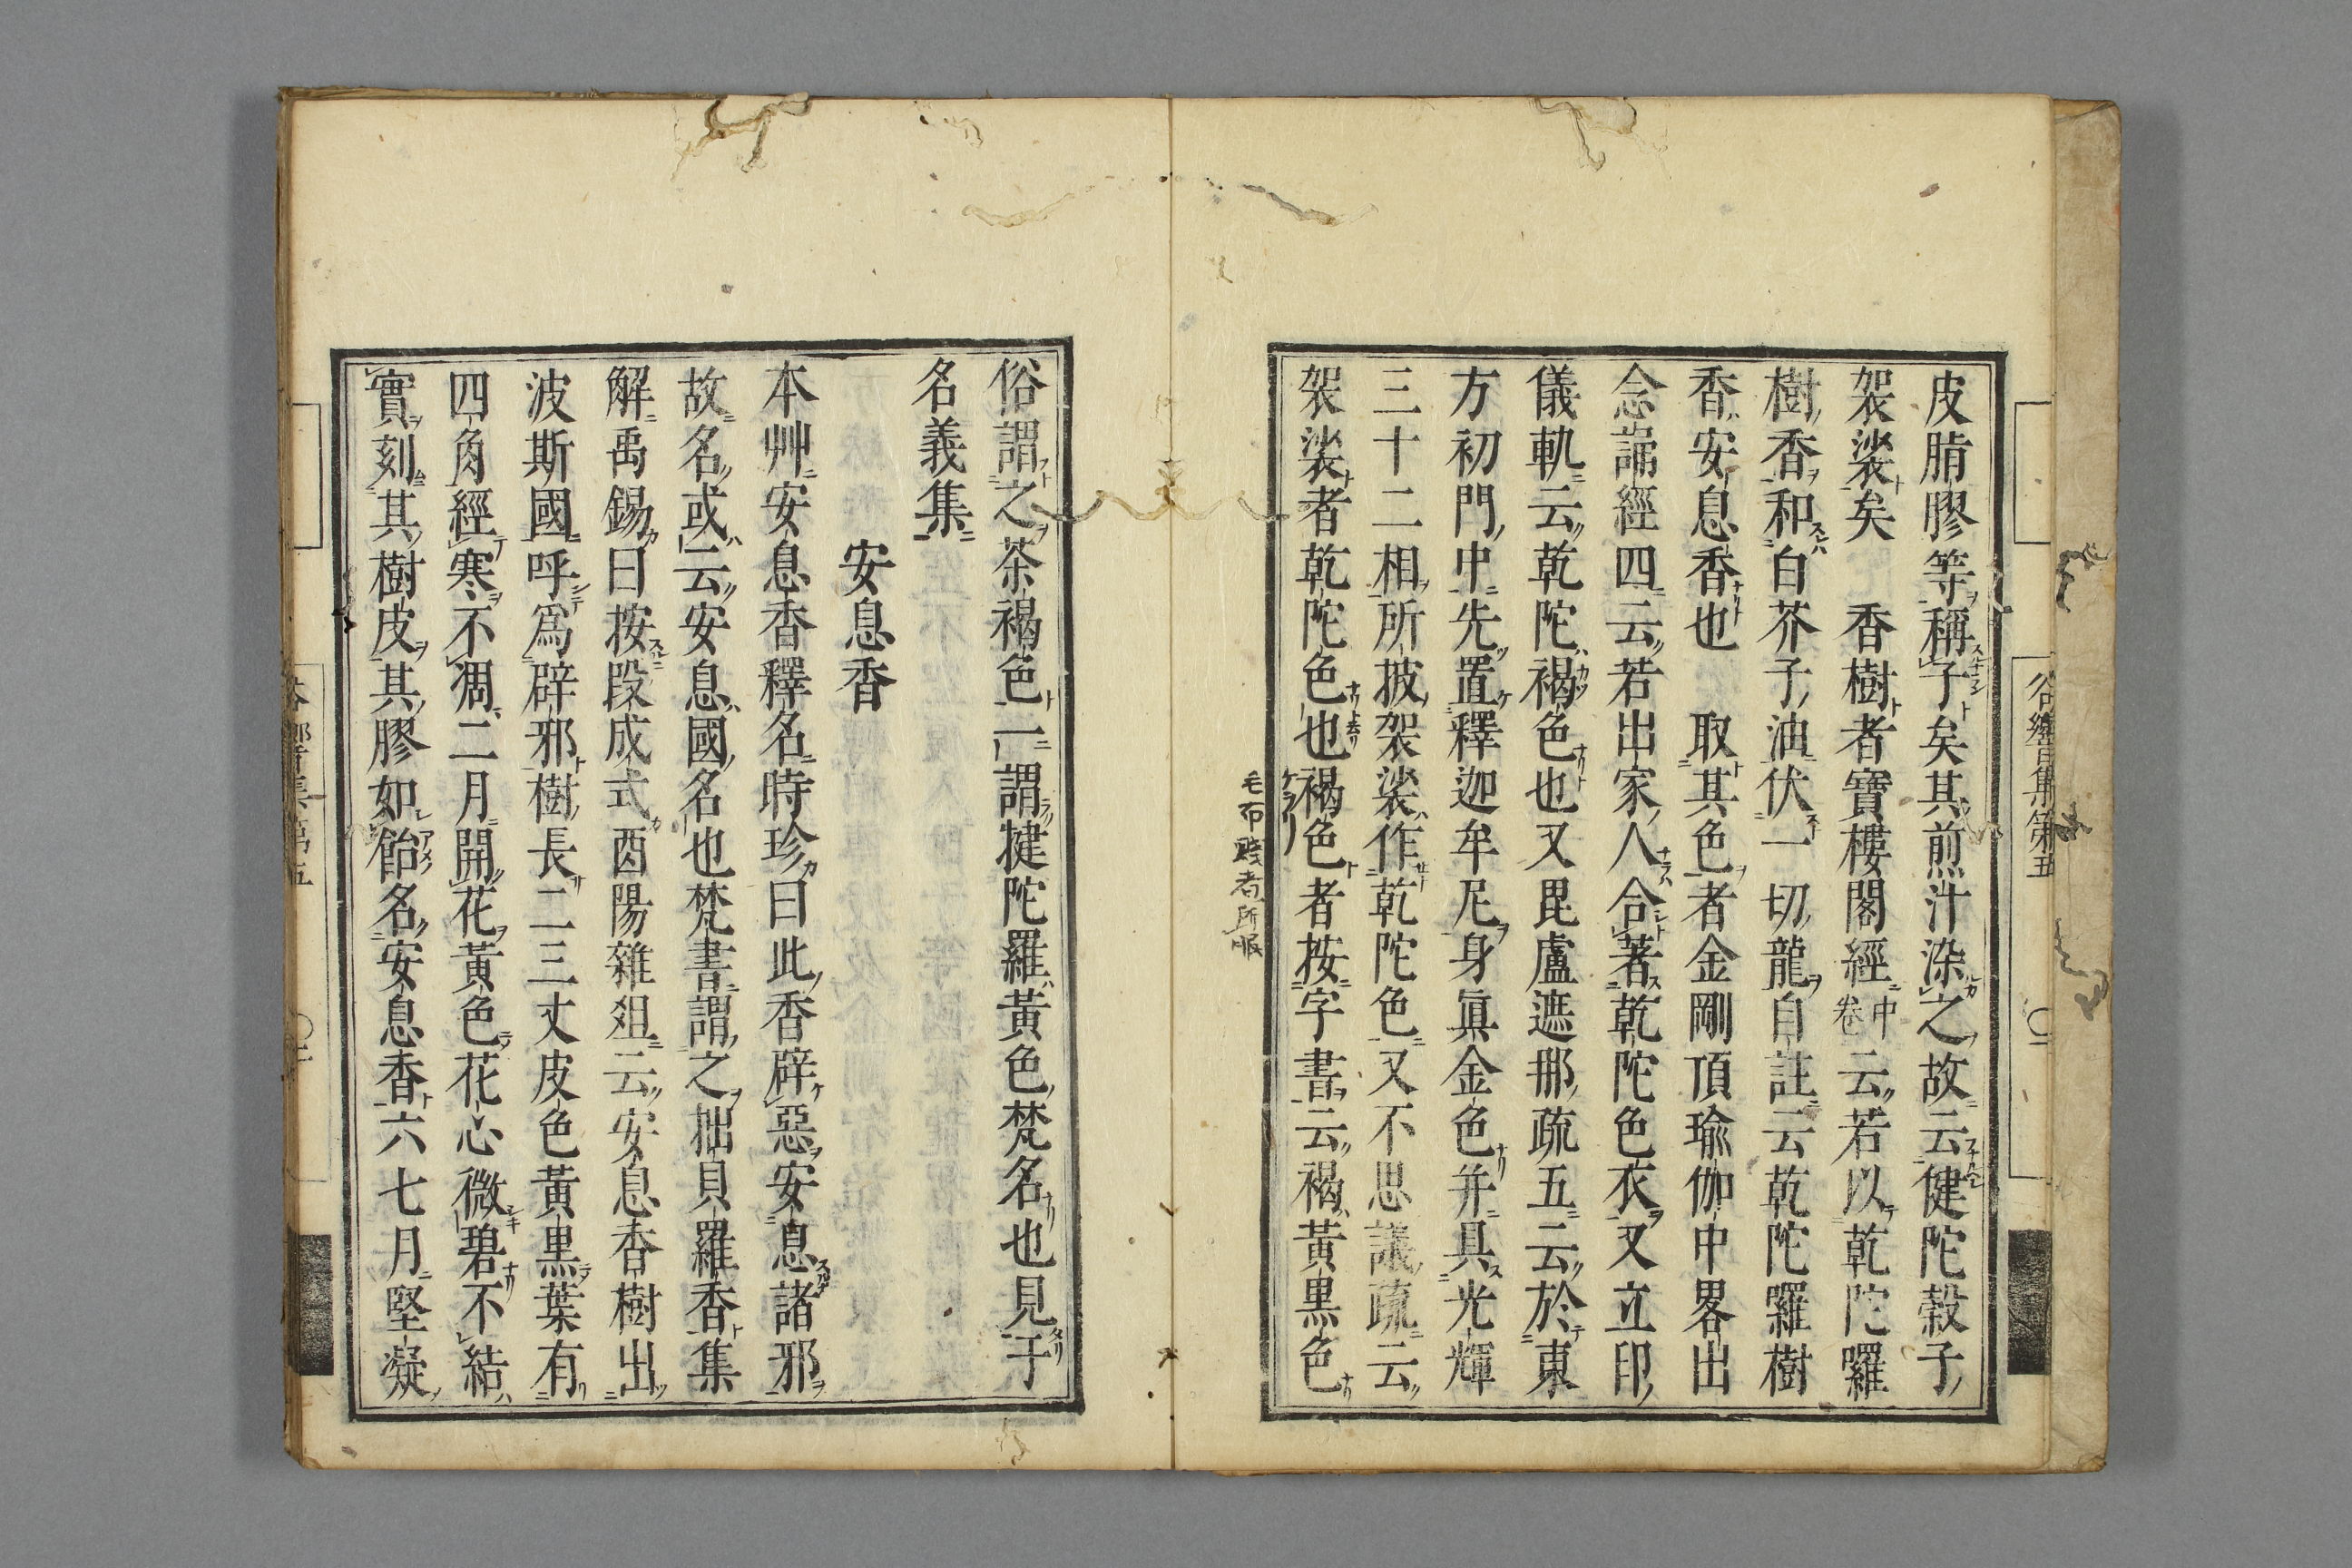 皮脂膠等稱子矣其煎汁染之故云健陀穀子
袈裟矣 香樹者寶樓閣經中卷云若以乾陀囉
樹香和白芥子油伏一切龍自註云乾陀囉樹
香安息香也 取其色者金剛頂瑜伽中畧出
念誦經四云若出家人合著乾陀色衣又立印
儀軌云乾陀褐色也又毘盧遮那疏五云於東
方初門中先置釋迦牟尼身眞金色并具光輝
三十二相所披袈裟作乾陀色又不思議疏云
袈裟者乾陀色也褐色者按字書云褐黃黒色
毛布賤者所服
俗謂之茶褐色一謂揵陀羅黃色梵名也見于
名義集
安息香
本艸安息香釋名時珍曰此香辟惡安息諸邪
故名或云安息國名也梵書謂之拙貝羅香集
解禹錫曰按段成式酉陽雜俎云安息香樹出
波斯國呼爲辟邪樹長二三丈皮色黃黒葉有
四角經寒不凋二月開花黃色花心微碧不結
實刻其樹皮其膠如飴名安息香六七月堅凝